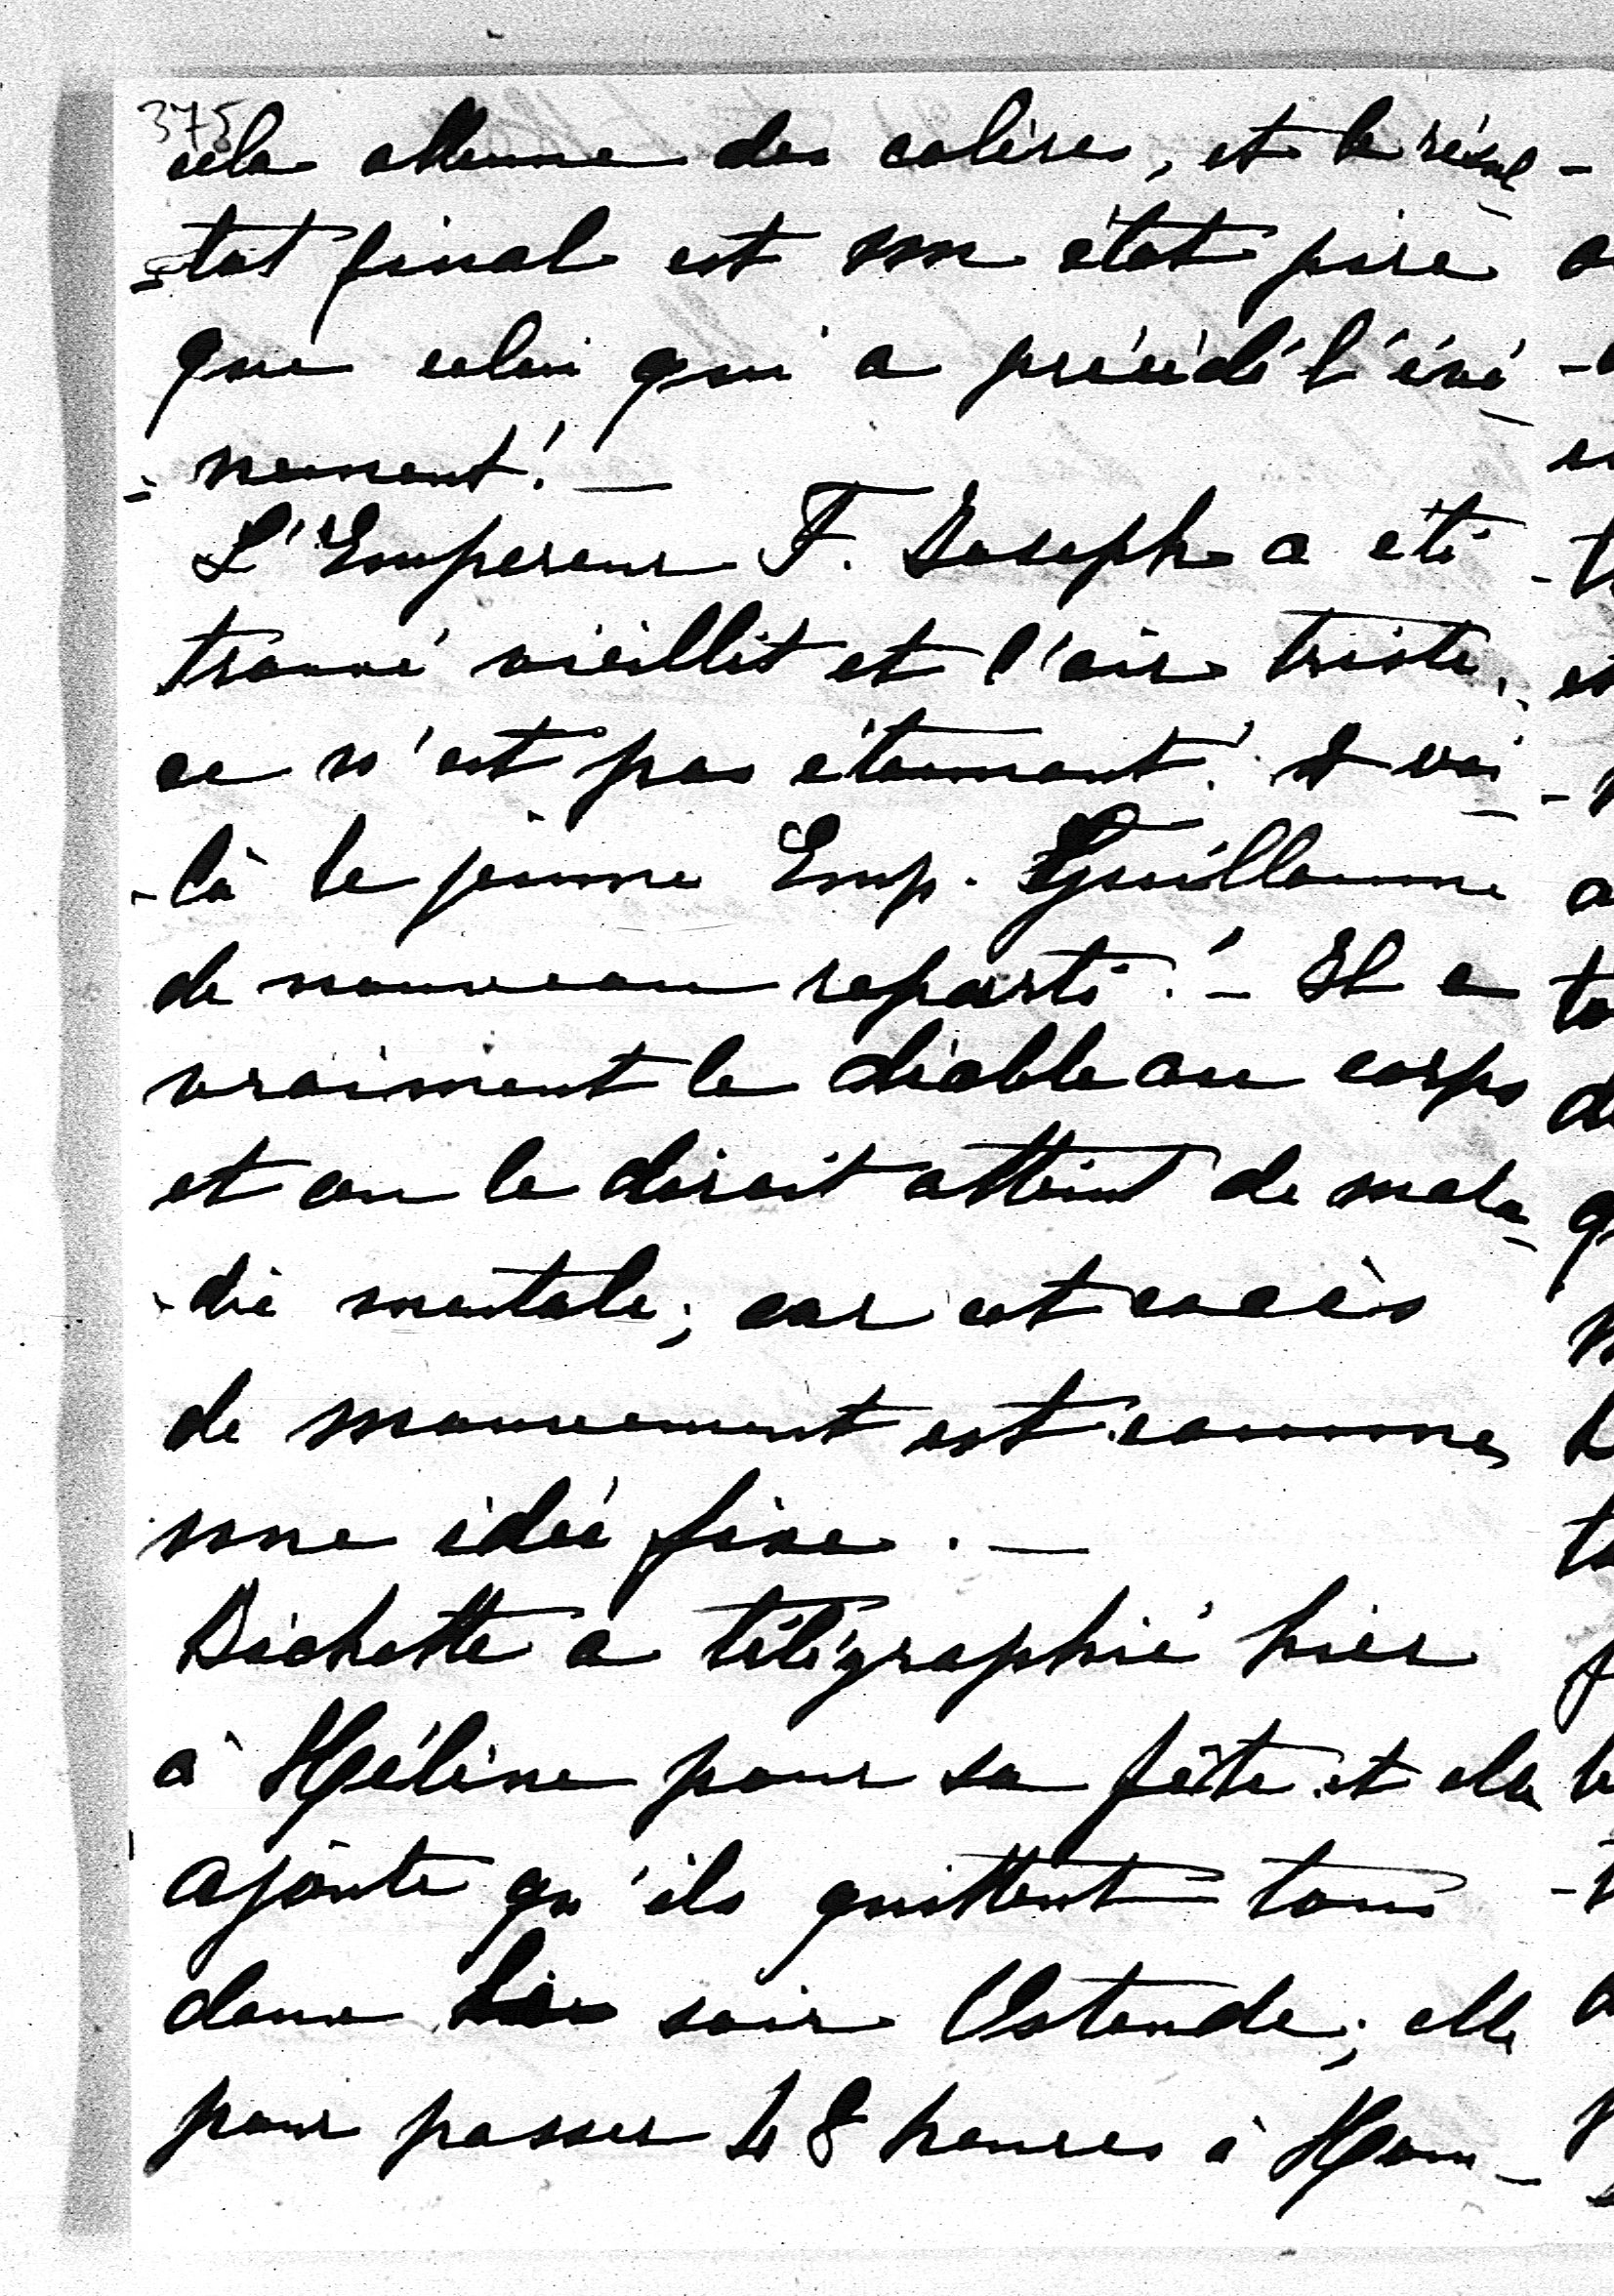 375
cela allume des colères, et le résul-
-tat final est un état pire
que celui qui a précédé l'évé-
-nement! —
L'Empereur F. Joseph a été
trouvé vieillit et l'air triste,
ce n'est pas étonnant! & voi-
-là le jeune Emp. Guillaume
de nouveau reparti! - Il a
vraiment le diable au corps
et on le dirait atteint de mala-
-die mentale; car cet excès
de mouvement est comme
une idée fixe. —
Bichette a télégraphié hier
à Hélène pour sa fête et elle
ajoute qu'ils quittent tous
deux soir Ostende; elle
pour passer 48 heures à Hom-